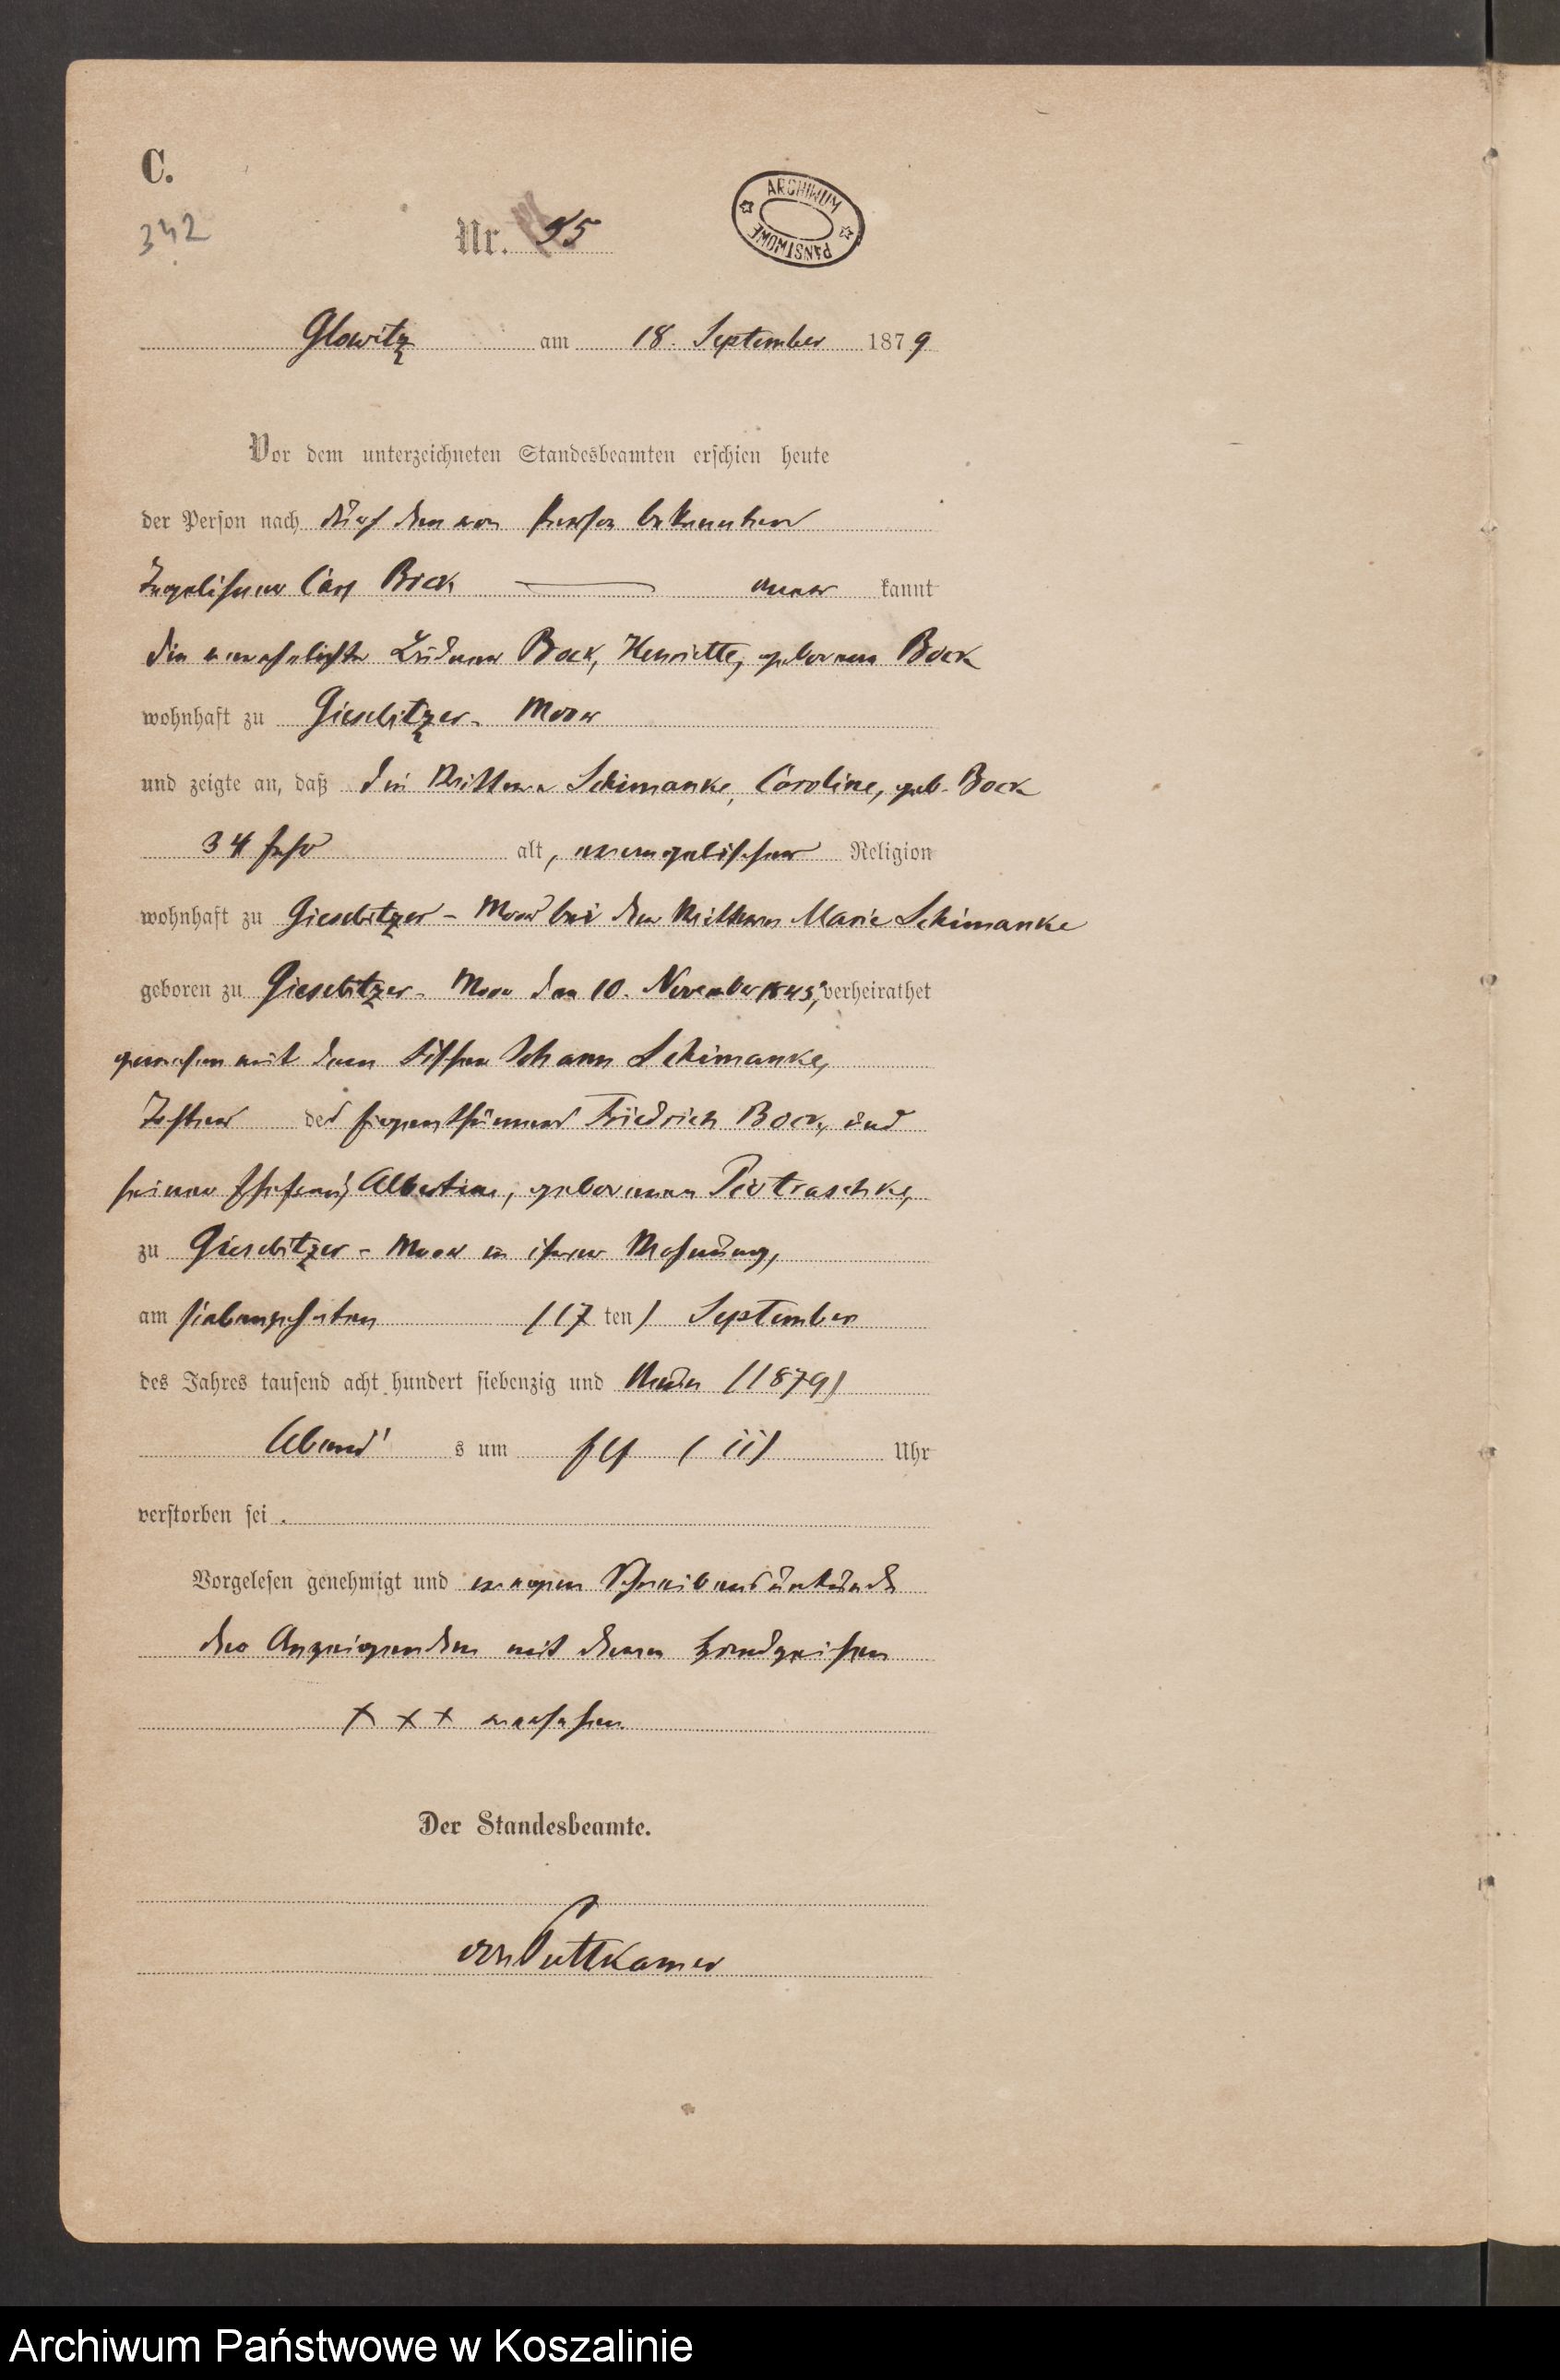 C.
342
Nr. 95
ARCHIWUM PAŃSTWOWE
Glowitz am 18. September 1879
Vor dem unterzeichneten Standesbeamten erschien heute
der Person nach durch den von Person bekannten
Carl Bock aner kannt
die verehelichte Büdner Bock, Henriette, geborene Bock
wohnhaft zu Gieselitzer-Moor
und zeigte an, daß die Wittwe Schimanke, Caroline, geb. Bock
34 Jahr alt, evangelischer Religion
wohnhaft zu Giesebitzer-Moor bei der Wittwe Marie Schimanke
geboren zu Giesebitzer-Moor den 10. November 1845, verheirathet
gewesen mit dem Fischer Johann Schimanke,
Tochter des Eigenthümers Friedrich Bock, und
seiner Ehefrau, Albertine, geborenen Piotraschke,
zu Giesebitzer-Moor in ihrer Wohnung,
am siebenzehnten (17 ten) September
des Jahres tausend acht hundert siebenzig und Neun (1879)
Abend s um Elf (11) Uhr
verstorben sei.
Vorgelesen genehmigt und wegen Schreibensunkunde
der Anzeigenden mit deren Handzeichen
+ + + versehen.
Der Standesbeamte.
von Puttkamer
Archiwum Państwowe w Koszalinie